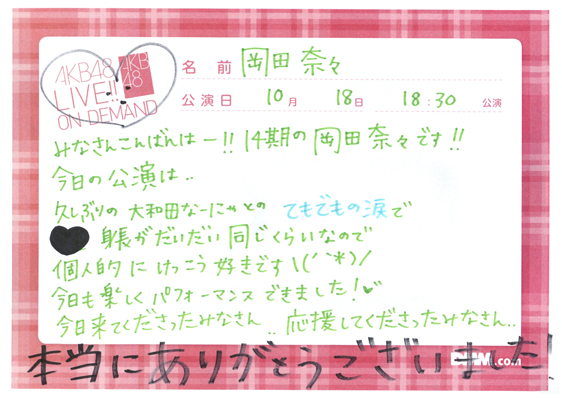 AKB48
LIVE!!
ON DEMAND
AKB
48
名 前 岡田 奈々
公演日 10月 18日 18:30 公演
みなさんこんばんはー!! 14期の 岡田 奈々です!!
今日の公演は..
久しぶりの 大和田なーにゃとの てもでもの涙で
身長がだいだい同じくらいなので
個人的に けっこう好きです\(´`*)/
今日も楽しくパフォーマンスできました!♡
今日来てくださったみなさん.. 応援してくださったみなさん..
本当にありがとうございました!
.com